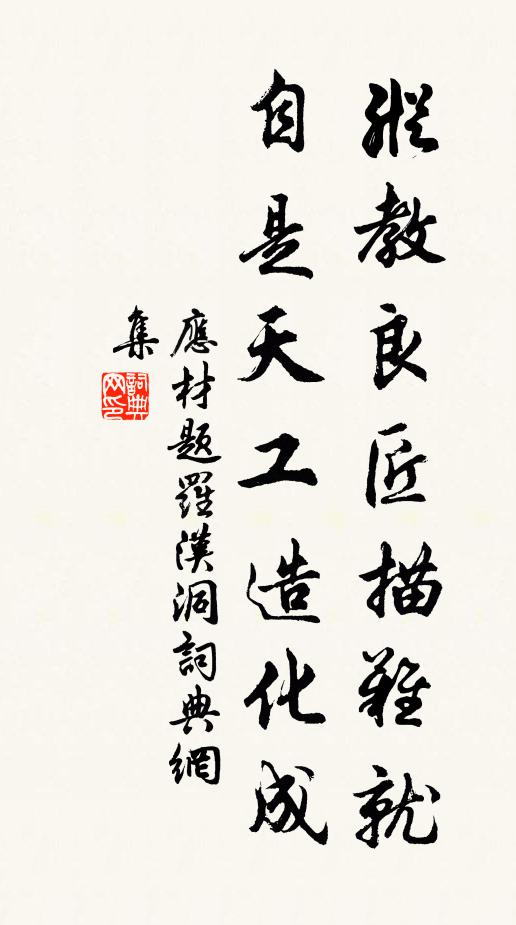 縱教良匠描難就
自是天工造化成
應材題羅漢洞詞典網
集
詞典
网印